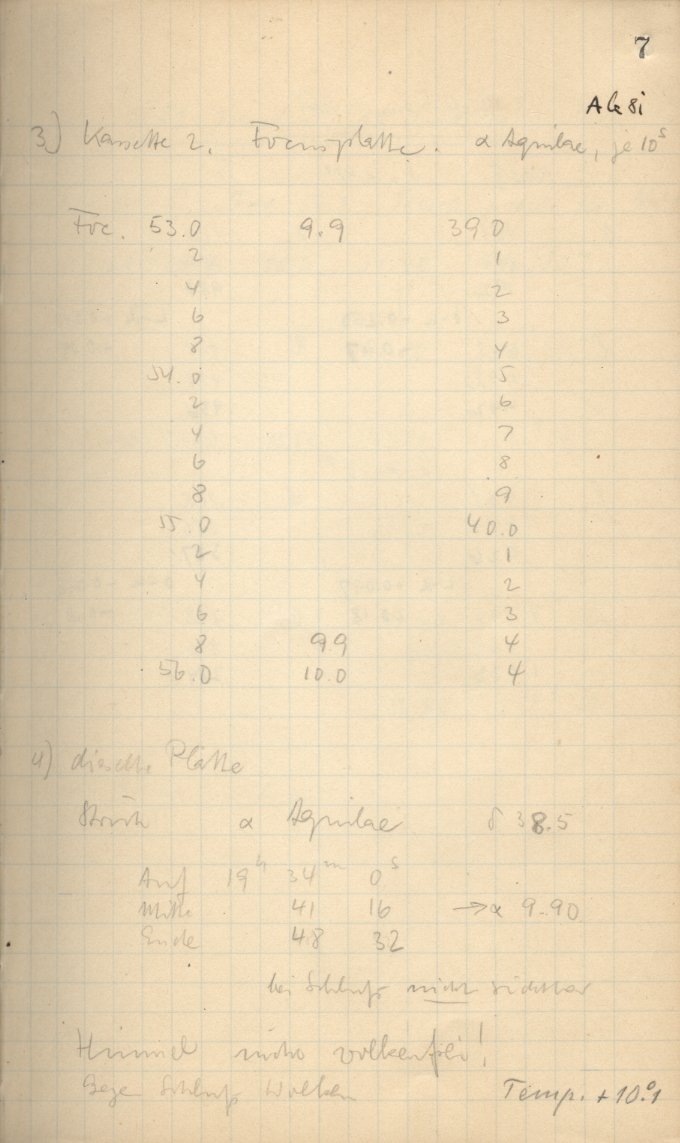 7
A G 8i
3) Kassette 2. Focusplatte. α Aquilae, je 10ˢ
Foc. 53.0 9.9 39.0
2 1
4 2
6 3
8 4
54.0 5
2 6
4 7
6 8
8 9
55.0 40.0
2 1
4 2
6 3
8 9.9 4
56.0 10.0 4
4) dieselbe Platte
α Aquilae δ 38.5
Auf 19ʰ 34ᵐ 0ˢ
Mitte 41 16 → α 9.90
Ende 48 32
bei Schluß nicht sichtbar
Himmel nicht wolkenfrei!
Gegen Schluß Wolken Temp. + 10.°1